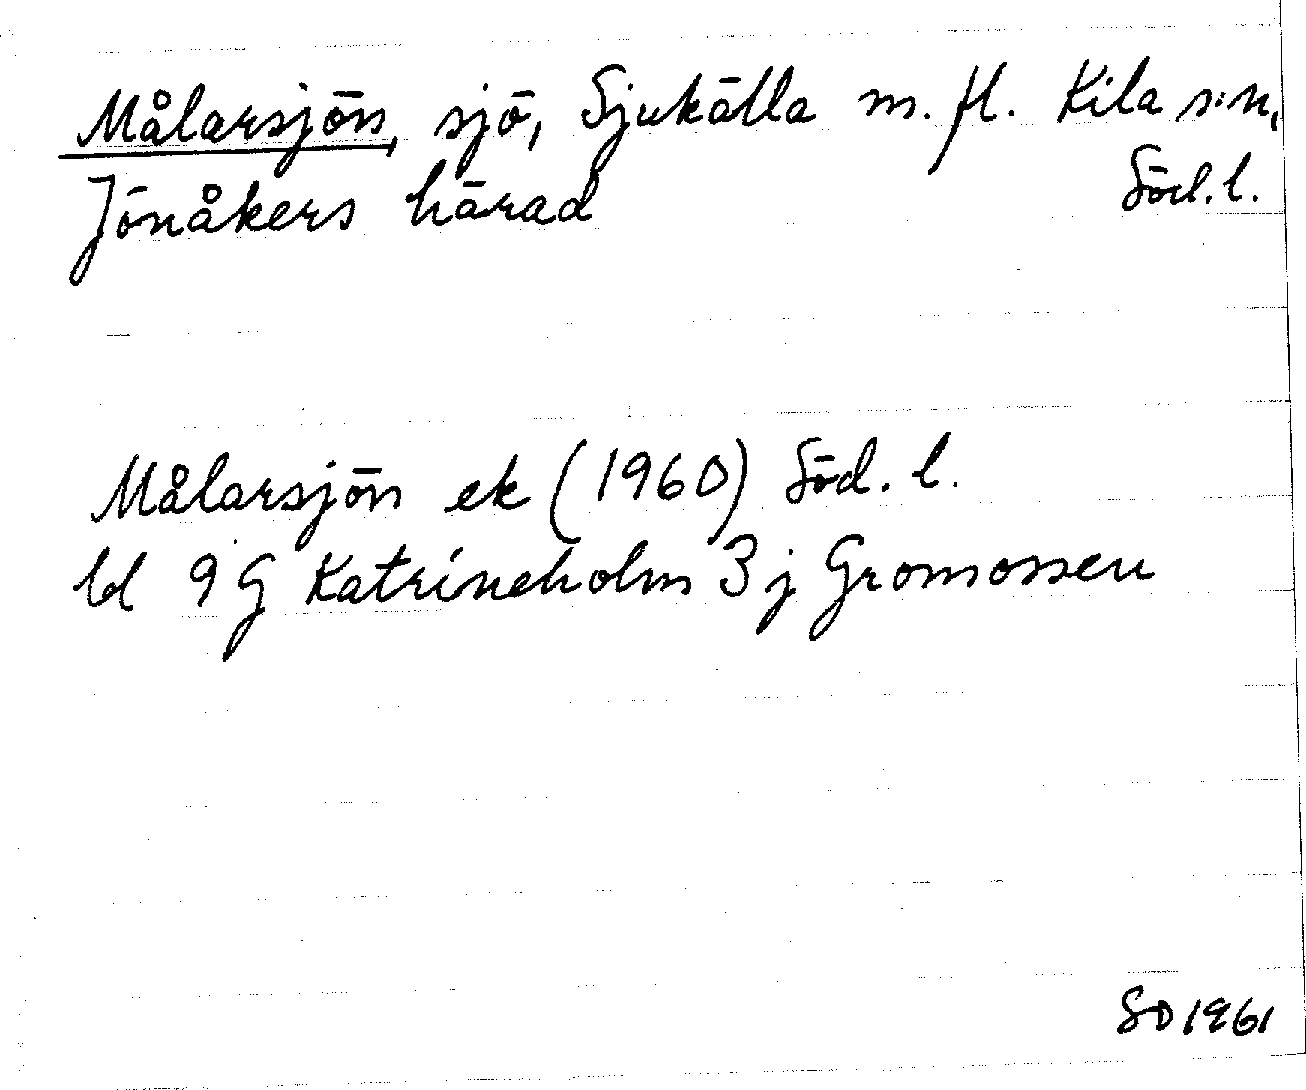 Målarsjön, sjö, Sjukälla m. fl. Kila s:n,
Jönåkers härad Söd. l.
Målarsjön ek (1960) Söd. l.
bl 9 G Katrineholm 3 j Gromossen
SD 1961